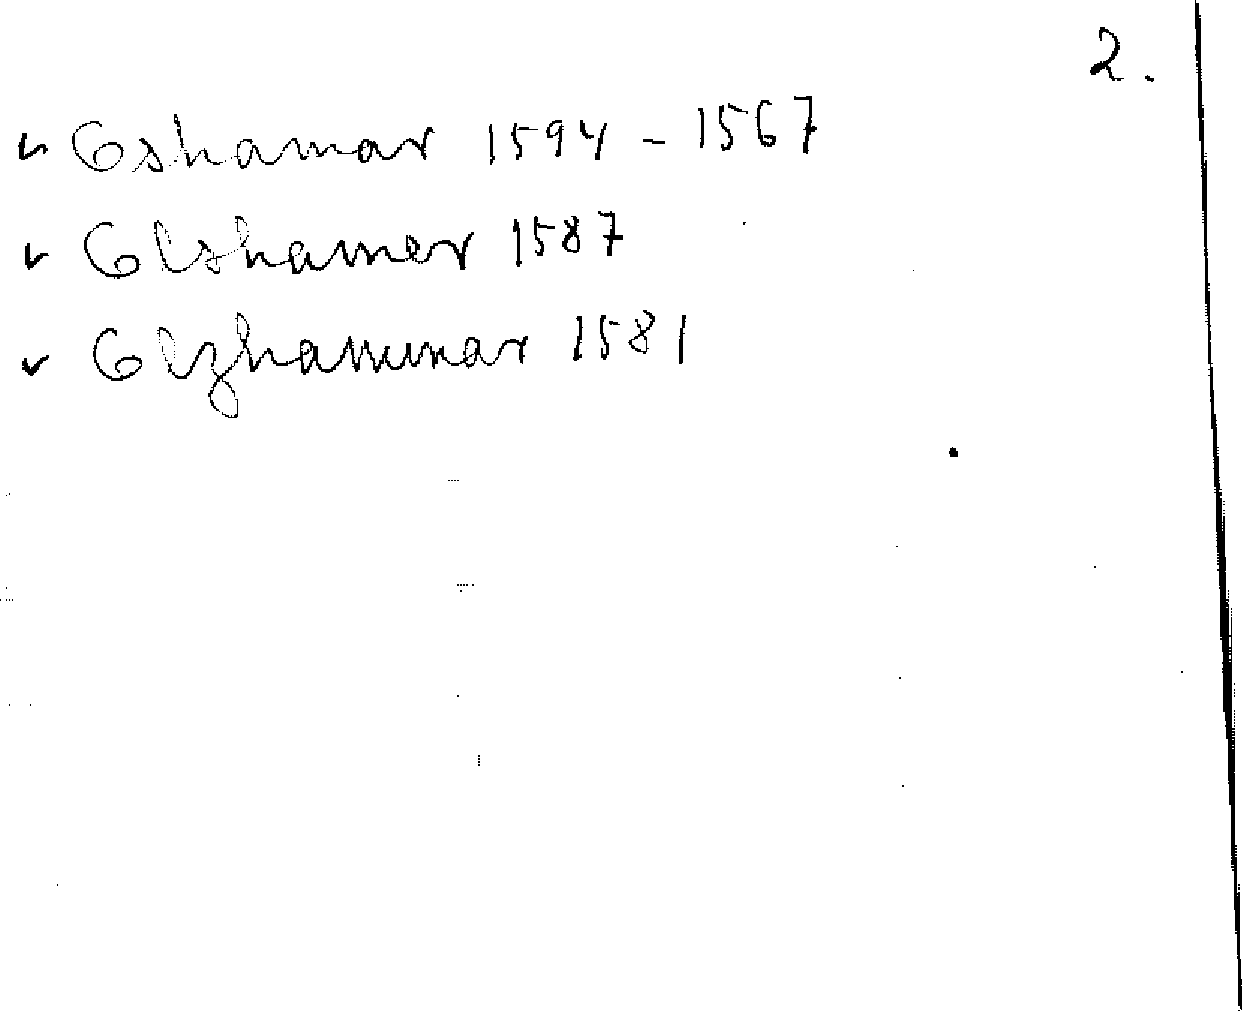 2.
Oshamar 1594 - 1567
Olshamer 1587
Olzhammar 1581